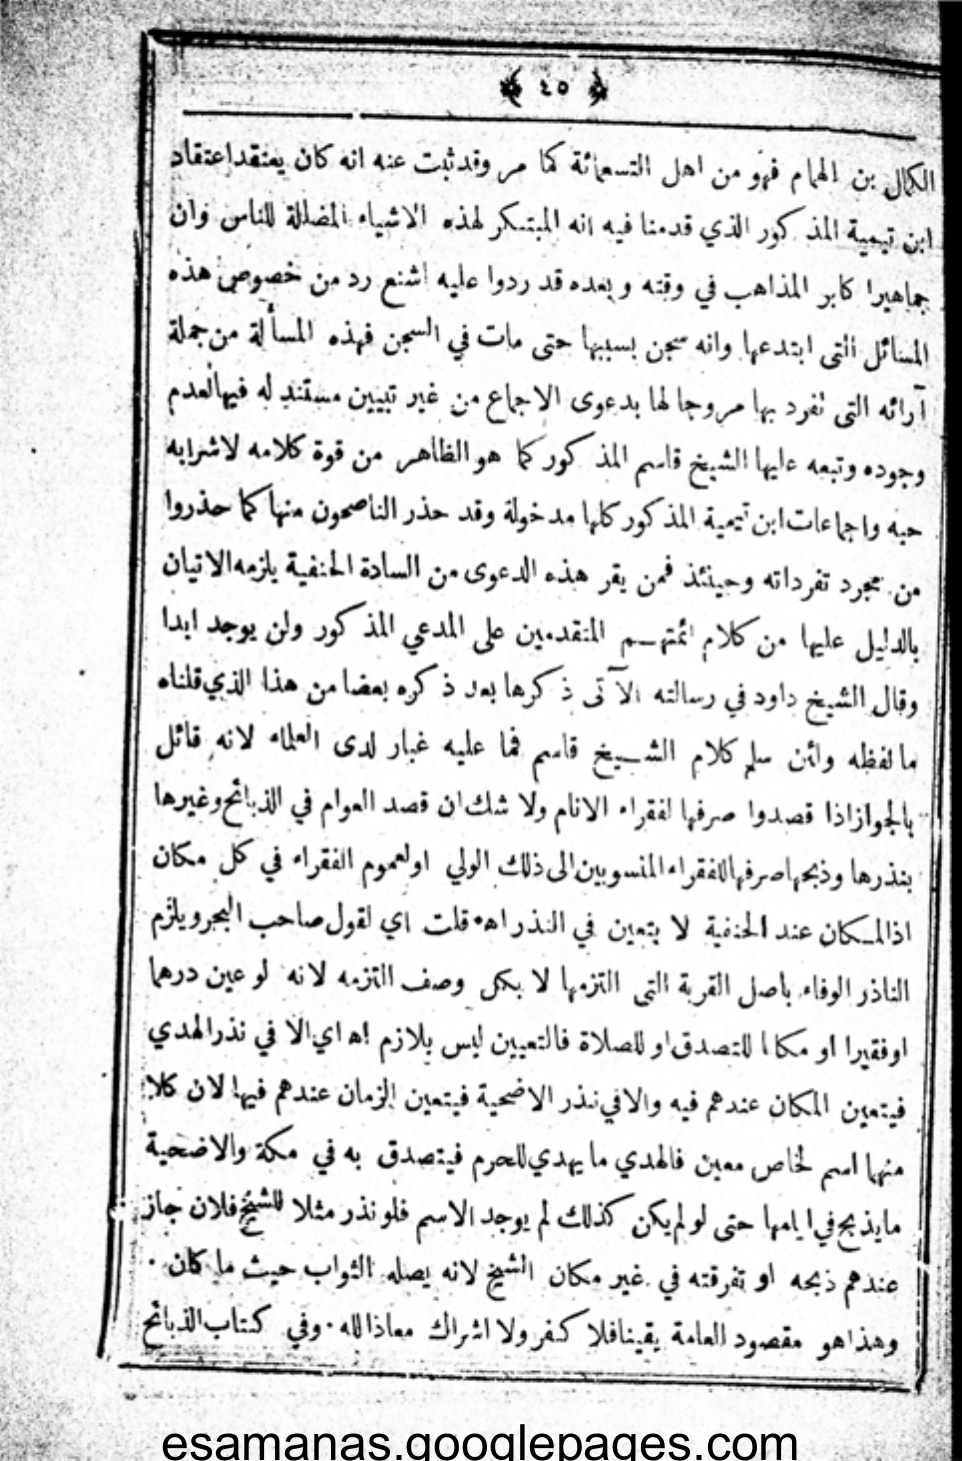 ٤٥
الكمال بن الهمام فهو من اهل التسعمائة كما مر وقد ثبت عنه انه كان يعتقد اعتقاد
ابن تيمية المذكور الذي قدمنا فيه انه المبتكر لهذه الاشياء المضللة للناس وان
جماهير اكابر المذاهب في وقته وبعده قد ردوا عليه اشنع رد من خصوص هذه
المسائل التى ابتدعها وانه سجن بسببها حتى مات في السجن فهذه المسألة من جملة
آرائه التى تفرد بها مروجا لها بدعوى الاجماع من غير تبيين مستند له فيها لعدم
وجوده وتبعه عليها الشيخ قاسم المذكور كما هو الظاهر من قوة كلامه لاشرابه
حبه واجماعات ابن تيمية المذكور كلها مدخولة وقد حذر الناصحون منها كما حذروا
من مجرد تفرداته وحينئذ فمن يقر هذه الدعوى من السادة الحنفية يلزمه الاتيان
بالدليل عليها من كلام ائمتهم المتقدمين على المدعي المذكور ولن يوجد ابدا
وقال الشيخ داود في رسالته الآتى ذكرها بعد ذكره بعضا من هذا الذي قلناه
ما لفظه وائن سلم كلام الشيخ قاسم فما عليه غبار لدى العلماء لانه قائل
بالجواز اذا قصدوا صرفها لفقراء الانام ولا شك ان قصد العوام في الذبائح وغيرها
بنذرها وذبحها صرفها للفقراء المنسوبين الى ذلك الولي او لعموم الفقراء في كل مكان
اذ المكان عند الحنفية لا يتعين في النذر اه قلت اي لقول صاحب البحر ويلزم
الناذر الوفاء باصل القربة التى التزمها لا بكل وصف التزمه لانه لو عين درهما
او فقيرا او مكانا للتصدق او للصلاة فالتعيين ليس بلازم اه اي الا في نذر الهدي
فيتعين المكان عندهم فيه والا في نذر الاضحية فيتعين الزمان عندهم فيها لان كلا
منهما اسم لخاص معين فالهدي ما يهدي للحرم فيتصدق به في مكة والاضحية
ما يذبح في ايامها حتى لو لم يكن كذلك لم يوجد الاسم فلو نذر مثلا للشيخ فلان جاز
عندهم ذبحه او تفرقته في غير مكان الشيخ لانه يصله الثواب حيث ما كان ٠
وهذا هو مقصود العامة يقينا فلا كفر ولا اشراك معاذ الله ٠ وفي كتاب الذبائح
esamanas.googlepages.com